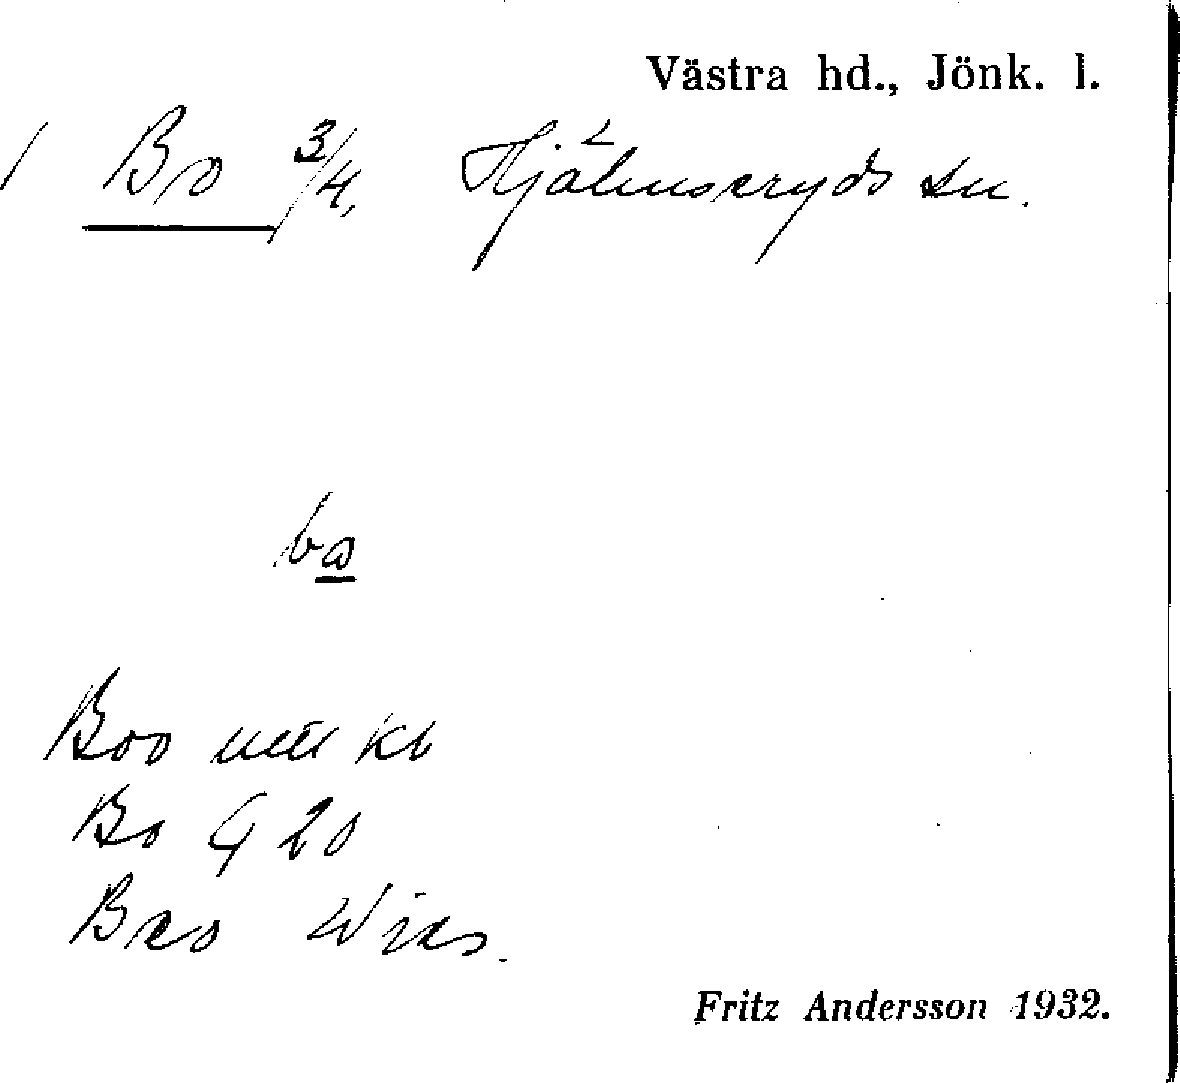 Västra hd., Jönk. l.
Bo 3/4, Hjälmseryds sn.
bo
Boo kb
Bo G 20
Boo Wies.
Fritz Andersson 1932.